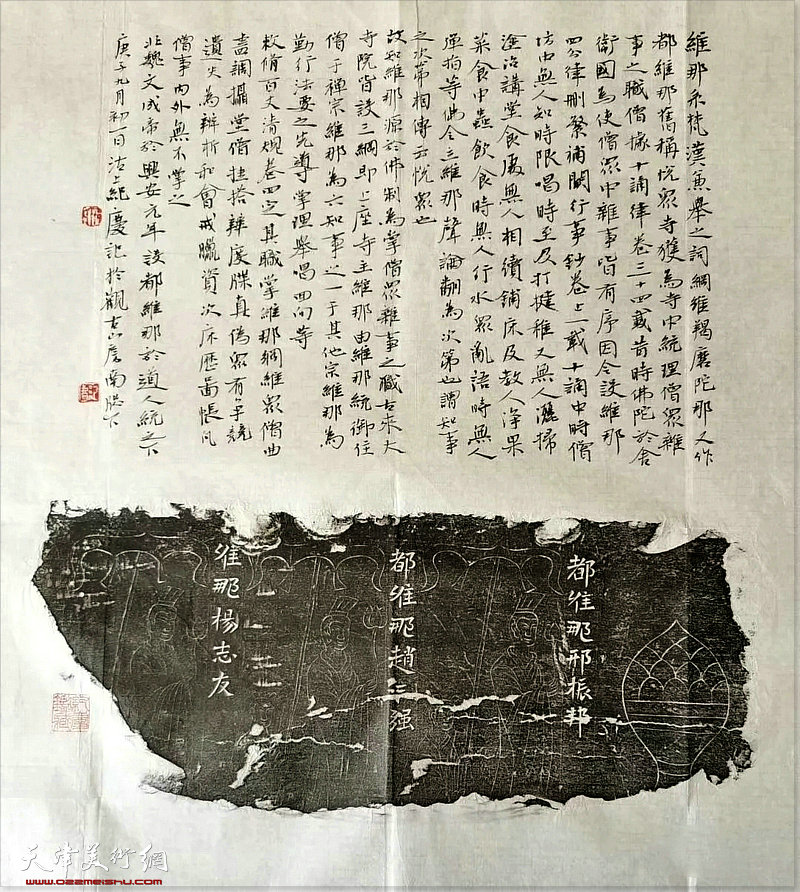 維那系梵漢兼舉之詞綱維羯磨陀那又作
都維那舊稱悅眾寺護為寺中統理僧眾雜
事之職僧據十誦律卷三十四載昔時佛陀於舍
衛國為使僧眾中雜事皆有序因令設維那
四分律刪繁補闕行事鈔卷上一載十誦中時僧
坊中無人知時限唱時至及打揵稚又無人灑掃
塗治講堂食處無人相續鋪床及教人淨果
菜食中蟲飲食時無人行水眾亂語時無人
彈指等佛令立維那聲論翻為次第也謂知事
之次第相傳云悅眾也
故知維那源於佛制為掌僧眾雜事之職古來大
寺院皆設三綱即上座寺主維那由維那統御住
僧于禪宗維那為六知事之一于其他宗維那為
勤行法要之先導掌理舉唱回向等
敕脩百丈清規卷四之其職掌維那綱維眾僧曲
盡調攝堂僧挂搭辨度牒真偽眾有爭競
遺失為辨析和會戒臘資次床歷圖帳凡
僧事內外無不掌之
北魏文成帝於興安元年設都維那於道人統之下
庚子九月初一日沽上紀慶記於觀古廬南牕下
都維那邢振邦
都維那趙強
維那楊志友
天津美術網
www.022meishu.com